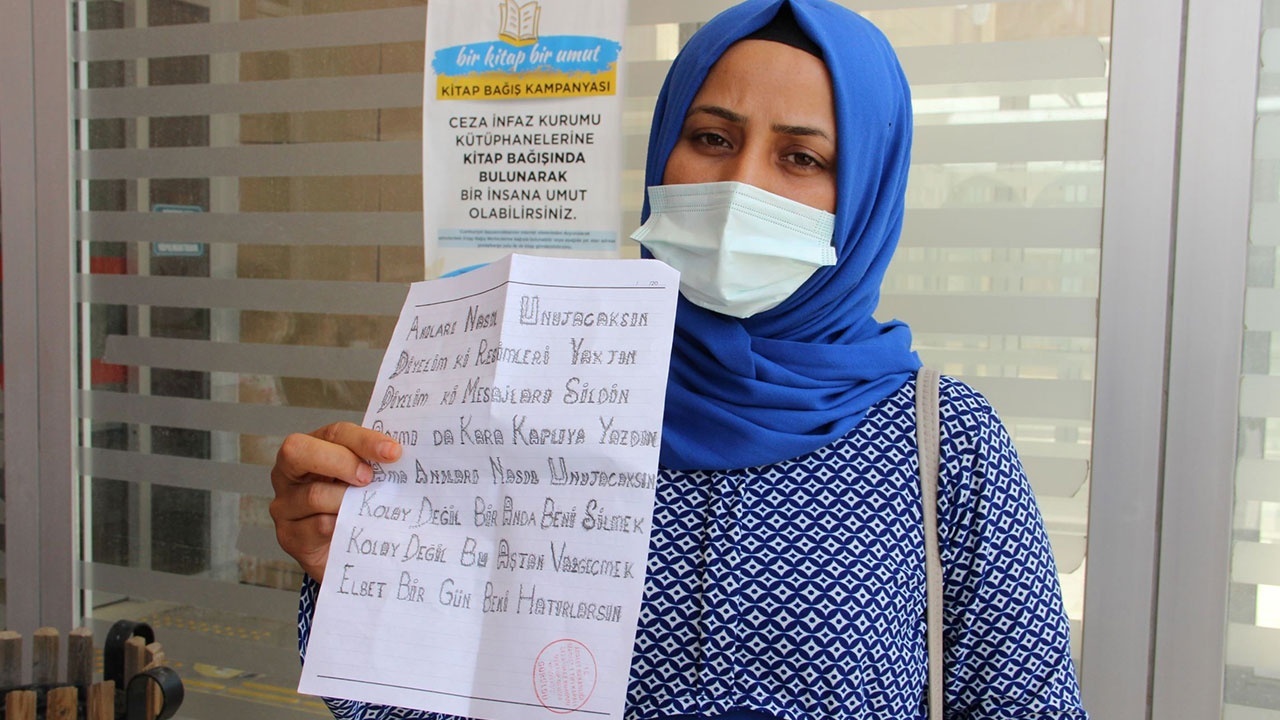 bir kitap bir umut
KİTAP BAĞIŞ KAMPANYASI
CEZA İNFAZ KURUMU
KÜTÜPHANELERİNE
KİTAP BAĞIŞINDA
BULUNARAK
BİR İNSANA UMUT
OLABİLİRSİNİZ.
/20
ANILARI NASIL UNUTACAKSIN
DİYELİM Kİ RESİMLERİ YAKTIN
DİYELİM Kİ MESAJLARI SİLDİN
ADIMI DA KARA KAPLIYA YAZDIN
AMA ANILARI NASIL UNUTACAKSIN
KOLAY DEĞİL BİR ANDA BENİ SİLMEK
KOLAY DEĞİL BU AŞTAN VAZGEÇMEK
ELBET BİR GÜN BENİ HATIRLARSIN